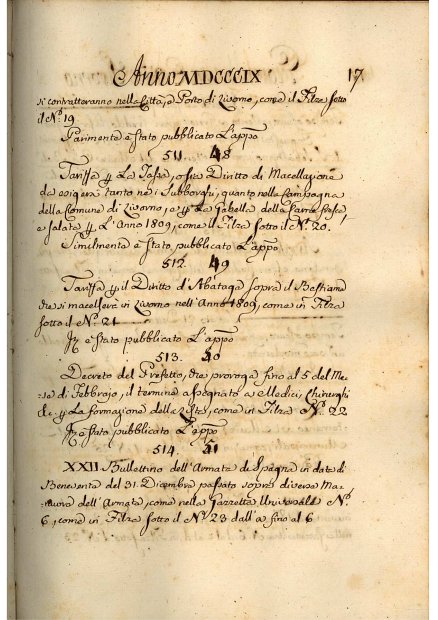 Anno MDCCCIX 17
si contratteranno nella Città, e Porto di Livorno, come il Filza sotto
il Nº 19
Parimente è stato pubblicato L'appo
511. 48
Tariffa p La Tassa, o sia Diritto di Macellazione
da esigersi tanto ne i Subborghi, quanto nella Campagna
della Comune di Livorno, e p La Gabella della Carne fresca
e salata p L'Anno 1809, come il Filza sotto il Nº 20.
Similmente è stato pubblicato L'appo
512. 49
Tariffa p il Diritto d'Abataga sopra il Bestiame
che si macellerà in Livorno nell'Anno 1809, come in Filza
sotto il Nº 21
è stato pubblicato L'appo
513. 40
Decreto del Prefetto, che proroga fino al 5 del Me:
se di Febbrajo, il termine assegnato a Medici, Chirurghi
&c. p La formazione della Lista, come in Filza Nº 22
è stato pubblicato L'appo
514. 41
XXII Bullettino dell'Armata di Spagna in data di
Benevento del 31. Dicembre passato sopra diverse Ma:
nuvre dell'Armata, come nella Gazzetta Universale Nº
6, come in Filza sotto il Nº 23 dall'a fino al 6